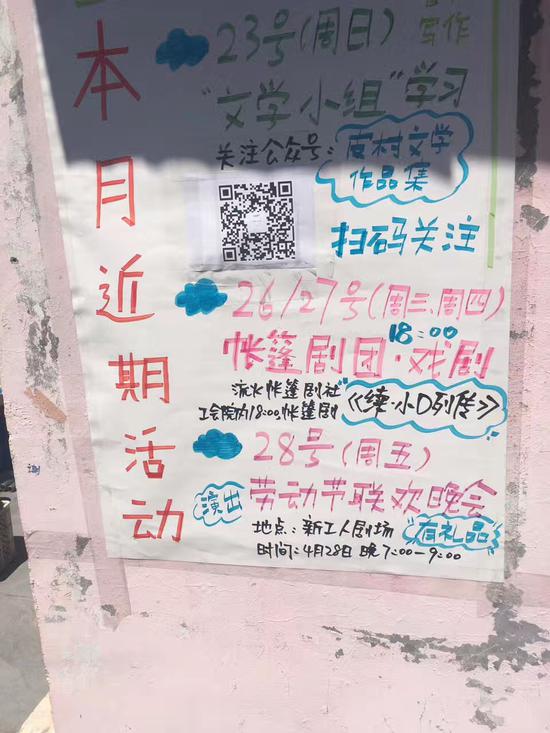 本月近期活动
23号(周日)
写作
“文学小组”学习
关注公众号:
皮村文学
作品集
扫码关注
26/27号(周三、周四)
18:00
帐篷剧团·戏剧
流火帐篷剧社
工会院内18:00帐篷剧
《续·小D列传》
28号(周五)
演出
劳动节联欢晚会
地点:新工人剧场
有礼品
时间:4月28日 晚7:00—9:00